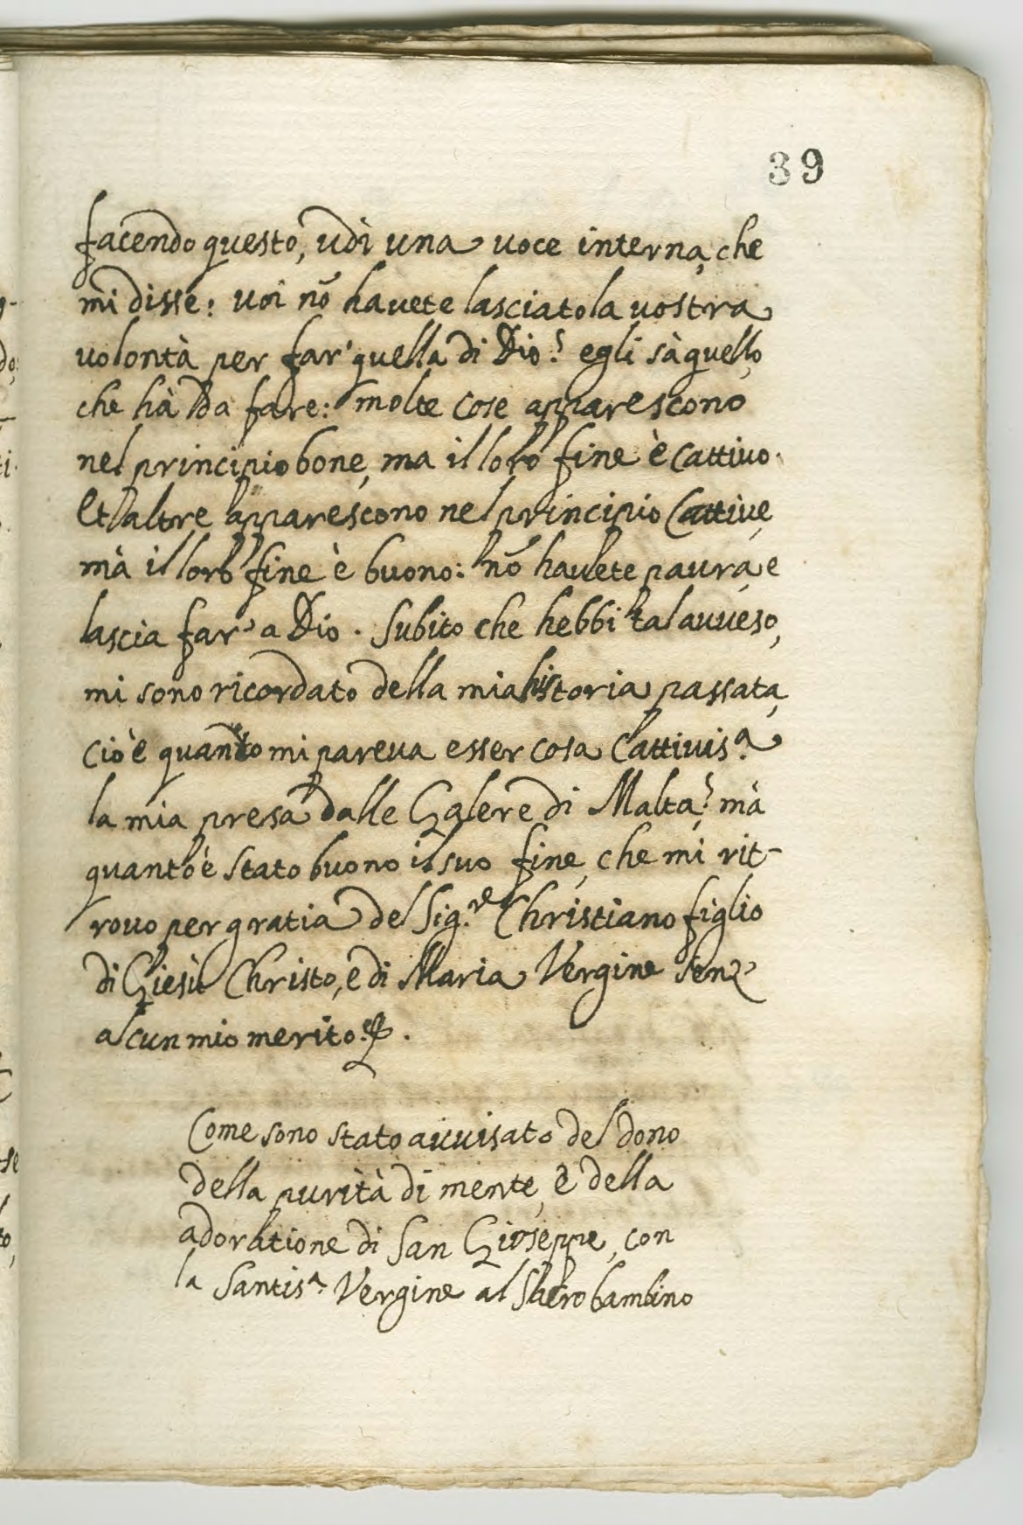 39
facendo questo, udì una voce interna, che
mi disse: voi nõ havete lasciato la vostra
volontà per far' quella di Dio? egli sà quello,
che hà da fare: molte cose apparescono
nel principio bone, ma il loro fine è cattivo.
Et altre apparescono nel principio Cattive,
mà il loro fine è buono: nõ havete paura, e
lascia far' a Dio. Subito che hebbi tal avveso,
mi sono ricordato della mia historia passata,
cioè quanto mi pareva esser cosa Cattivis.ª
la mia presa dalle Galere di Malta? mà
quanto è stato buono il suo fine, che mi rit-
rovo per gratia del Sig.re Christiano figlio
di Giesù Christo, e di Maria Vergine senz'
alcun mio merito.
Come sono stato avvisato del dono
della purità di mente, e della
adoratione di San Gioseppe, con
la Santis.ª Vergine al bambino